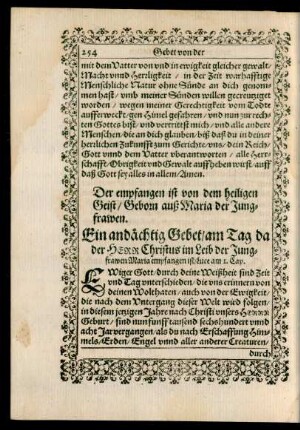 254 Gebet von der
mit dem Vatter von vnd in ewigkeit gleicher gewalt/
Macht vnnd Herrligkeit / in der Zeit warhafftige
Menschliche Natur ohne Sünde an dich genom-
men hast / vnb meiner Sünden willen gecreutziget
worden / wegen meiner Gerechtigkeit vom Todte
aufferweckt / gen Himel gefahren / vnd nun zur rech-
ten Gottes bist / vnd vertrittst mich / vnd alle andere
Menschen / die an dich glauben / biß daß du in deiner
herrlichen Zukunfft zum Gerichte / vns / dein Reich /
Gott vnnd dem Vatter vberantworten / alle Herr-
schafft / Obrigkeit vnd Gewalt auffheben wirst / auff
daß Gott sey alles in allem / Amen.
Der empfangen ist von dem heiligen
Geist / Geborn auß Maria der Jung-
frawen.
Ein andächtig Gebet / am Tag da
der HERR Christus im Leib der Jung-
frawen Maria empfangen ist
EWiger Gott / durch deine Weißheit sind Zeit
vnd Tag vnterschieden / die vns erinnern von
deinen Wolthaten / auch von der Ewigkeit /
die nach dem Vntergang dieser Welt wird folgen /
in diesem jetzigen Jahre nach Christi vnsers HERRN
Geburt / sind nun funfftausend sechshundert vnnd
acht Jar vergangen / als du nach Erschaffung Him-
mels / Erden / Engel vnnd aller anderer Creaturen /
durch